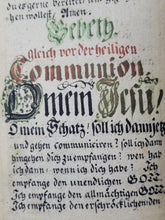 gen wollest, Amen.
Gebeth,
gleich vor der heiligen
Communion
O mein Jesu!
O mein Schatz! soll ich dann jetzt
und gehen communiciren? soll ich dann
hingehen dich zu empfangen? wen hab
ich dann, wenn ich dich habe? Ich
empfange den unendlichen GOTT
Ich empfange den allmächtigen GOTT
Ich empfange den erschröcklichen